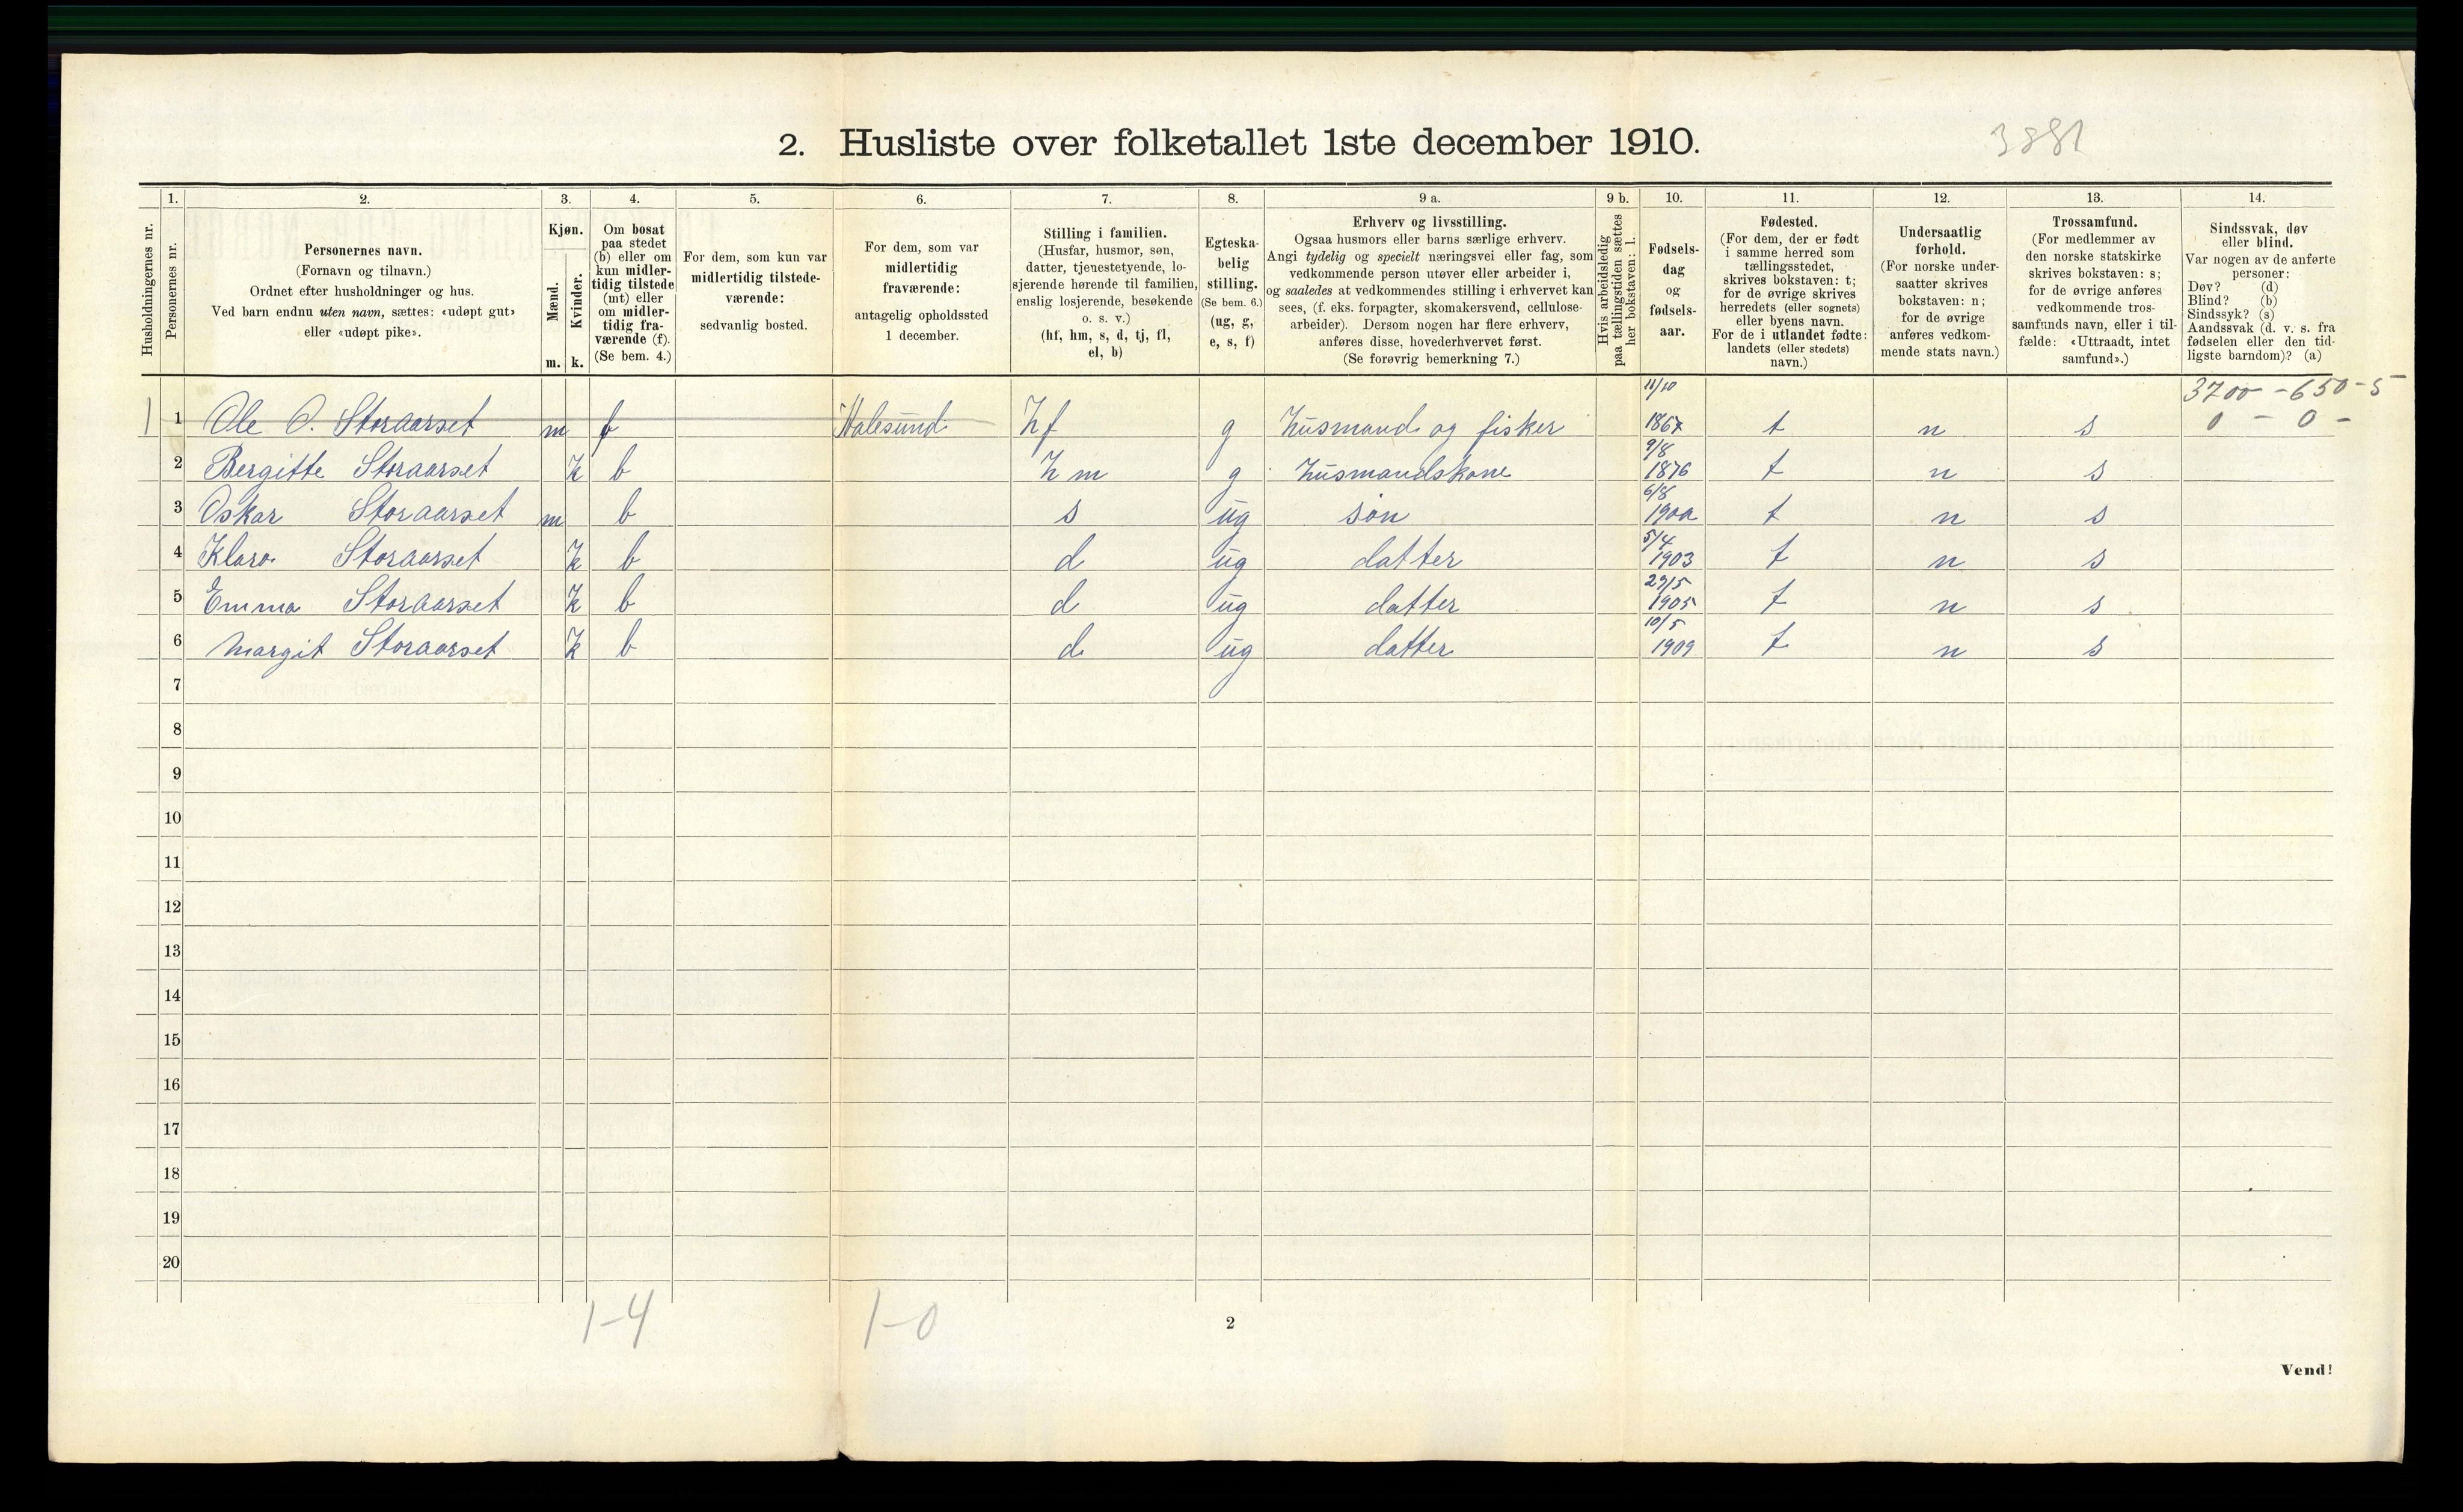 2. Husliste over folketallet 1ste december 1910.
3881
Husholdningernes nr.
1. Personernes nr.
2. Personernes navn.
(Fornavn og tilnavn.)
Ordnet efter husholdninger og hus.
Ved barn endnu uten navn, sættes: «udøpt gut»
eller «udøpt pike».
3. Kjøn.
Mænd. m.
Kvinder. k.
4. Om bosat
paa stedet
(b) eller om
kun midler-
tidig tilstede
(mt) eller
om midler-
tidig fra-
værende (f).
(Se bem. 4.)
5. For dem, som kun var
midlertidig tilstede-
værende:
sedvanlig bosted.
6. For dem, som var
midlertidig
fraværende:
antagelig opholdssted
1 december.
7. Stilling i familien.
(Husfar, husmor, søn,
datter, tjenestetyende, lo-
sjerende hørende til familien,
enslig losjerende, besøkende
o. s. v.)
(hf, hm, s, d, tj, fl,
el, b)
8. Egteska-
belig
stilling.
(Se bem. 6.)
(ug, g,
e, s, f)
9 a. Erhverv og livsstilling.
Ogsaa husmors eller barns særlige erhverv.
Angi tydelig og specielt næringsvei eller fag, som
vedkommende person utøver eller arbeider i,
og saaledes at vedkommendes stilling i erhvervet kan
sees, (f. eks. forpagter, skomakersvend, cellulose-
arbeider). Dersom nogen har flere erhverv,
anføres disse, hovederhvervet først.
(Se forøvrig bemerkning 7.)
9 b. Hvis arbeidsledig
paa tællingstiden sættes
her bokstaven: l.
10. Fødsels-
dag
og
fødsels-
aar.
11. Fødested.
(For dem, der er født
i samme herred som
tællingsstedet,
skrives bokstaven: t;
for de øvrige skrives
herredets (eller sognets)
eller byens navn.
For de i utlandet fødte:
landets (eller stedets)
navn.)
12. Undersaatlig
forhold.
(For norske under-
saatter skrives
bokstaven: n;
for de øvrige
anføres vedkom-
mende stats navn.)
13. Trossamfund.
(For medlemmer av
den norske statskirke
skrives bokstaven: s;
for de øvrige anføres
vedkommende tros-
samfunds navn, eller i til-
fælde: «Uttraadt, intet
samfund».)
14. Sindssvak, døv
eller blind.
Var nogen av de anførte
personer:
Døv? (d)
Blind? (b)
Sindssyk? (s)
Aandssvak (d. v. s. fra
fødselen eller den tid-
ligste barndom)? (a)
3700 - 650 - 5
0 - 0 -
1 1 Ole O. Storaarset m f Aalesund hf g husmand og fisker 11/10 1867 t n s
2 Bergitte Storaarset k b hm g husmandskone 9/8 1876 t n s
3 Oskar Storaarset m b s ug søn 6/8 1900 t n s
4 Klara Storaarset k b d ug datter 5/4 1903 t n s
5 Emma Storaarset k b d ug datter 29/5 1905 t n s
6 Margit Storaarset k b d ug datter 10/5 1909 t n s
7
8
9
10
11
12
13
14
15
16
17
18
19
20
1-4 1-0
2
Vend!